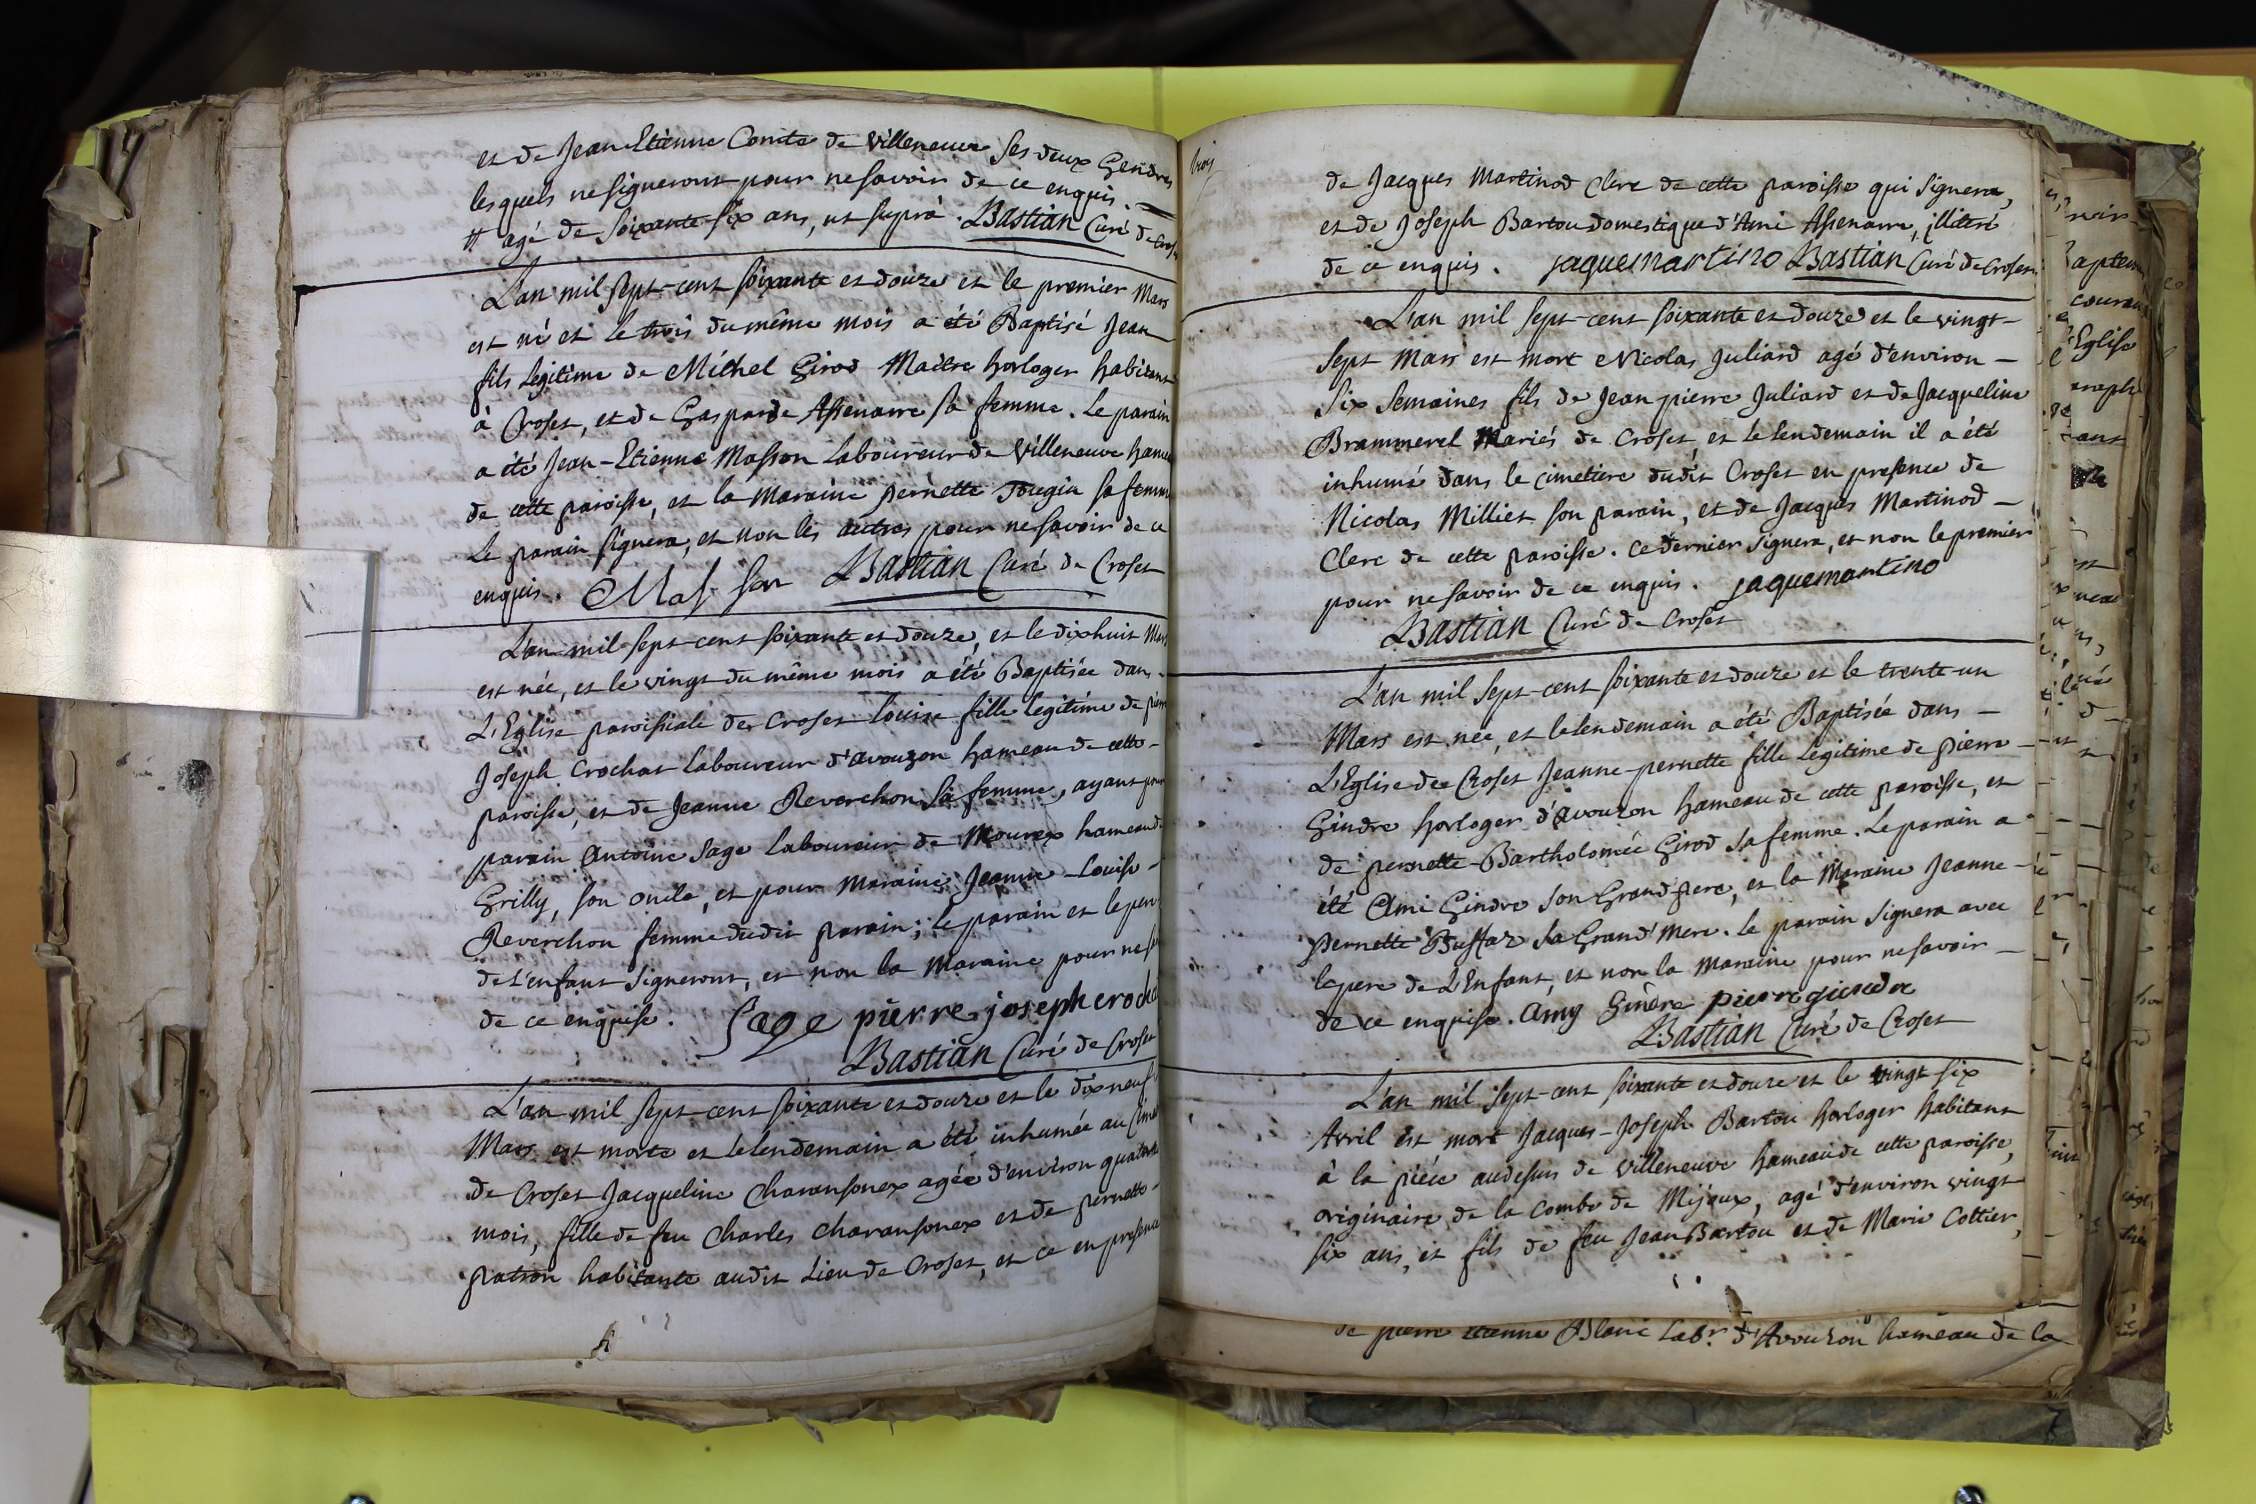 et de Jean Etienne Comte de Villeneuve ses deux Gendres
lesquels ne signeront pour ne savoir de ce enquis.
# agé de soixante-six ans, ut suprà. Bastian Curé de Croset
L'an mil sept-cent soixante et douze et le premier Mars
est né et le trois du même mois a été Baptisé Jean
fils legitime de Michel Girod Maitre horloger habitant
à Croset, et de Gasparde Assenarre sa femme. Le parain
a été Jean-Etienne Masson Laboureur de Villeneuve hameau
de cette paroisse, et la Maraine pernette Tougin sa femme
Le parain signera, et non les autres pour ne savoir de ce
enquis. Masson Bastian Curé de Croset
L'an mil sept-cent soixante et douze, et le dixhuit Mars
est née, et le vingt du même mois a été Baptisée dans
L'Eglise paroissiale de Croset Louise fille legitime de pierre
Joseph Crochat Laboureur d'avouzon hameau de cette
paroisse, et de Jeanne Reverchon sa femme, ayant pour
parain Antoine Sage Laboureur de Mourex hameau de
Grilly, son oncle, et pour Maraine Jeanne-Louise
Reverchon femme dudit parain; le parain et le pere
de L'enfant signeront, et non la Maraine pour ne sa
de ce enquise. Sage pierre joseph crocha
Bastian Curé de Croset
L'an mil sept-cent soixante et douze et le dixneuf
Mars est morte et le lendemain a été inhumée au Cime
de Croset Jacqueline Charansonex agée d'environ quatorze
mois, fille de feu Charles Charansonex et de pernette
patron habitante audit Lieu de Croset, et ce en presence
trois
de Jacques Martinod Clerc de cette paroisse qui signera,
et de Joseph Bartou domestique d'Ami Assenarre, illiteré
de ce enquis. jaquemartino Bastian Curé de Croset
L'an mil sept-cent soixante et douze et le vingt-
sept Mars est mort Nicolas Juliard agé d'environ
six semaines fils de Jean pierre Juliard et de Jacqueline
Brammerel Mariés de Croset, et le lendemain il a été
inhumé dans le cimetiere dudit Croset en presence de
Nicolas Milliet son parain, et de Jacques Martinod
Clerc de cette paroisse. ce dernier signera, et non le premier
pour ne savoir de ce enquis. jaquemartino
Bastian Curé de Croset
L'an mil sept-cent soixante et douze et le trente-un
Mars est née, et le lendemain a été Baptisée dans
L'Eglise de Croset Jeanne-pernette fille Legitime de pierre
Gindre horloger d'Avouzon hameau de cette paroisse, et
de pernette-Bartholomée Girod sa femme. Le parain a
été Ami Gindre son Grand pere, et la Maraine Jeanne
pernette Buffaz sa Grand'Mere. le parain signera avec
le pere de L'Enfant, et non la Maraine pour ne savoir
de ce enquise. Amy Gindre pierre gindre
Bastian Curé de Croset
L'an mil sept-cent soixante et douze et le vingt six
Avril est mort Jacques-Joseph Bartou horloger habitant
à la piece audessus de Villeneuve hameau de cette paroisse,
originaire de la Combe de Mijoux, agé d'environ vingt
six ans, et fils de feu Jean Bartou et de Marie Cottier,
de pierre Etienne Blanc Labr. d'Avouzon hameau de la